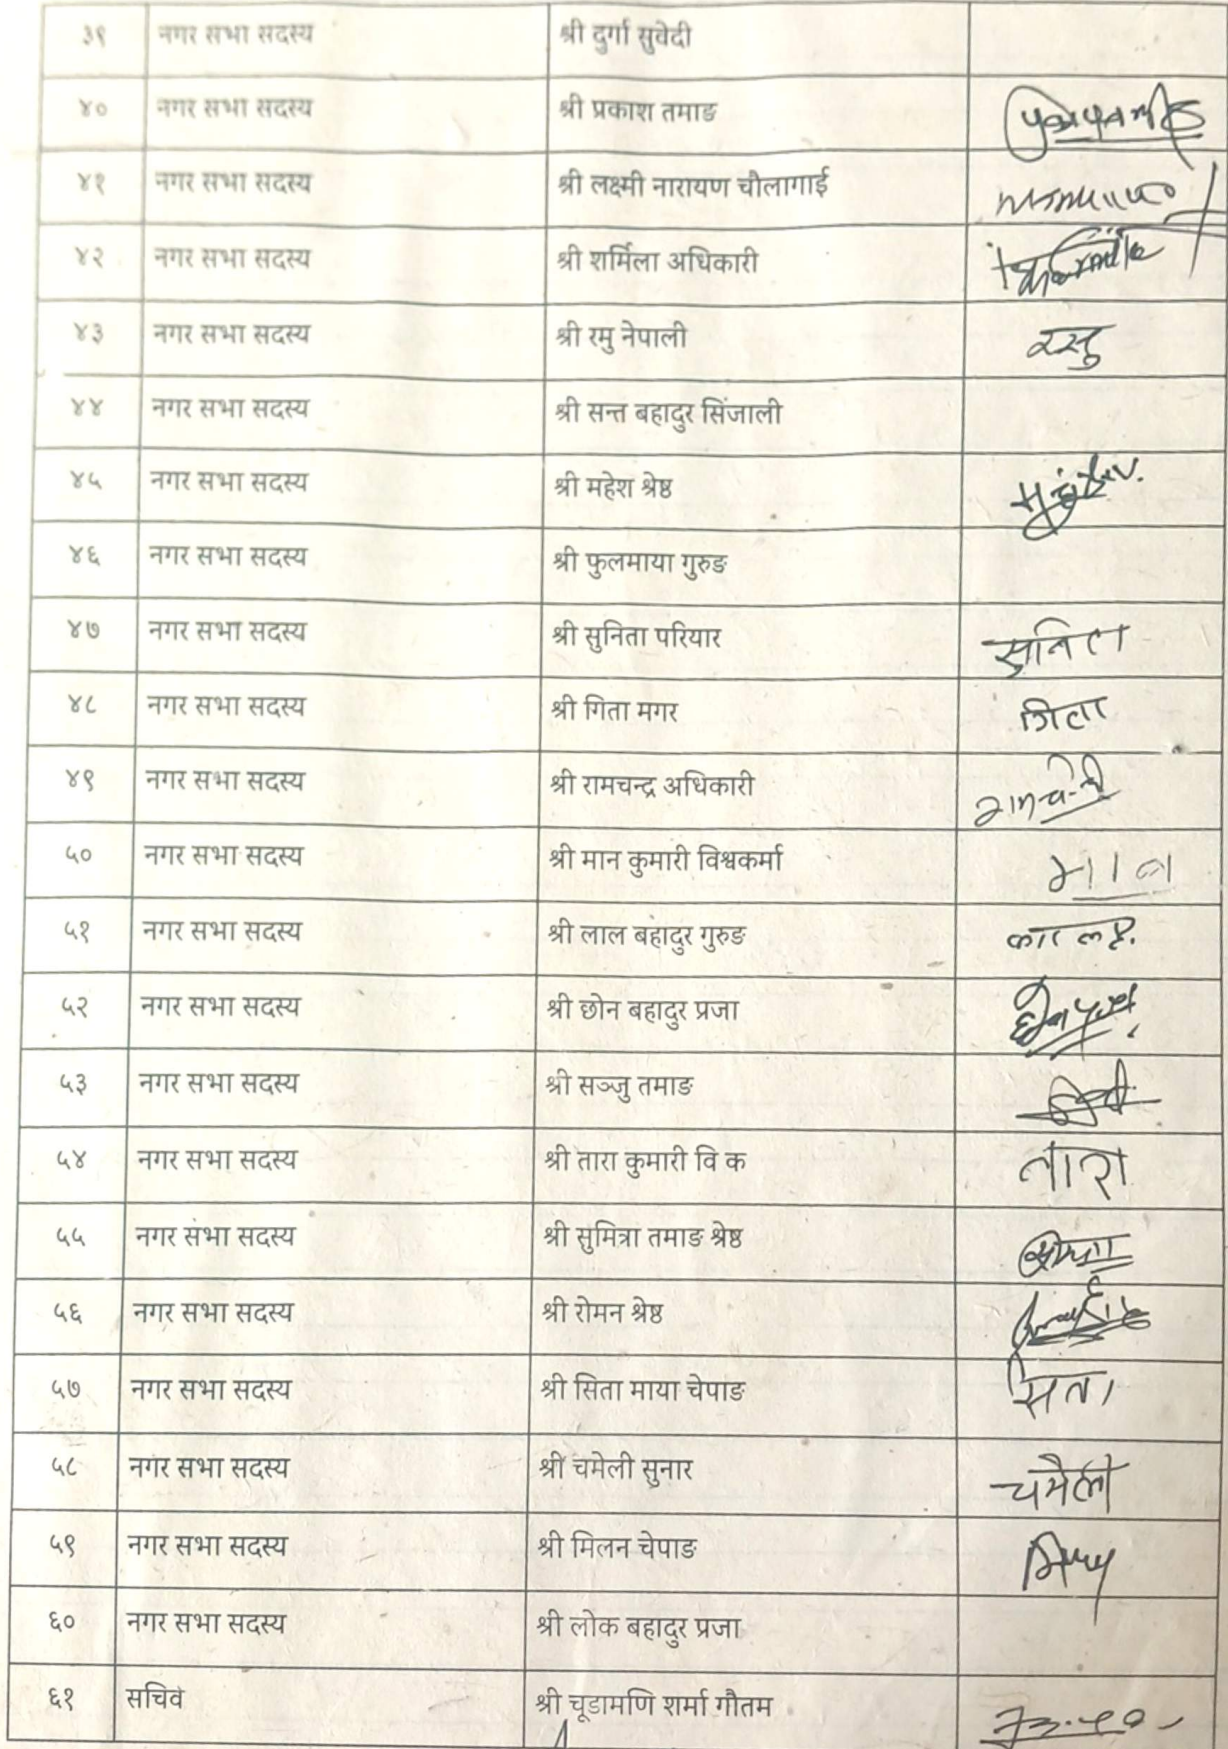 ३९ नगर सभा सदस्य श्री दुर्गा सुवेदी
४० नगर सभा सदस्य श्री प्रकाश तमाङ
४१ नगर सभा सदस्य श्री लक्ष्मी नारायण चौलागाई
४२ नगर सभा सदस्य श्री शर्मिला अधिकारी
४३ नगर सभा सदस्य श्री रमु नेपाली
४४ नगर सभा सदस्य श्री सन्त बहादुर सिंजाली
४५ नगर सभा सदस्य श्री महेश श्रेष्ठ
४६ नगर सभा सदस्य श्री फुलमाया गुरुङ
४७ नगर सभा सदस्य श्री सुनिता परियार सुनिता
४८ नगर सभा सदस्य श्री गिता मगर गिता
४९ नगर सभा सदस्य श्री रामचन्द्र अधिकारी
५० नगर सभा सदस्य श्री मान कुमारी विश्वकर्मा मान
५१ नगर सभा सदस्य श्री लाल बहादुर गुरुङ
५२ नगर सभा सदस्य श्री छोन बहादुर प्रजा
५३ नगर सभा सदस्य श्री सञ्जु तमाङ
५४ नगर सभा सदस्य श्री तारा कुमारी वि क तारा
५५ नगर सभा सदस्य श्री सुमित्रा तमाङ श्रेष्ठ
५६ नगर सभा सदस्य श्री रोमन श्रेष्ठ
५७ नगर सभा सदस्य श्री सिता माया चेपाङ सिता
५८ नगर सभा सदस्य श्री चमेली सुनार चमेली
५९ नगर सभा सदस्य श्री मिलन चेपाङ
६० नगर सभा सदस्य श्री लोक बहादुर प्रजा
६१ सचिव श्री चूडामणि शर्मा गौतम